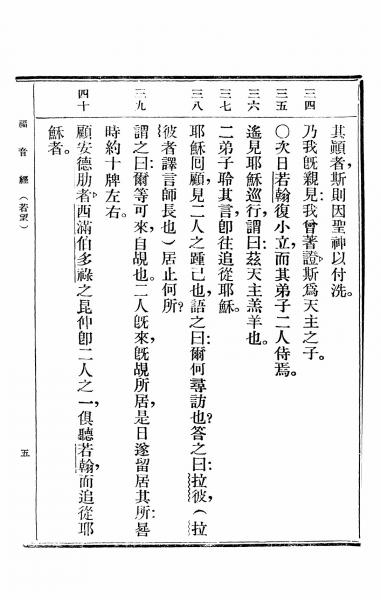 其顚者,斯則因聖神以付洗。
三四 乃我旣親見:我曾著證,斯爲天主之子。
三五 〇次日若翰復小立,而其弟子二人侍焉。
三六 遙見耶穌巡行,謂曰:茲天主羔羊也。
三七 二弟子聆其言,卽往追從耶穌。
三八 耶穌囘顧,見二人之踵己也,語之曰:爾何尋訪也?答之曰:拉彼,(拉
彼者譯言師長也)居止何所?
三九 謂之曰:爾等可來,自覘也。二人旣來,旣覘所居,是日遂留居其所:晷
時約十牌左右。
四十 顧安德肋者,西滿伯多祿之昆仲,卽二人之一,俱聽若翰,而追從耶
穌者。
福音經(若望)
五